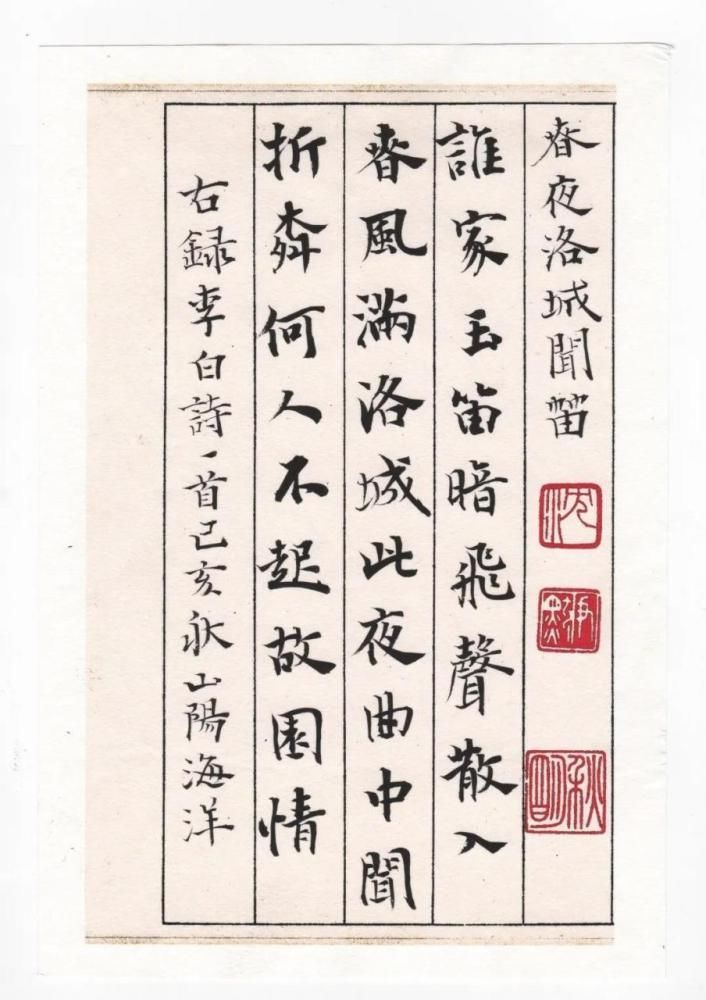 春夜洛城聞笛
沈
秋明
誰家玉笛暗飛聲散入
春風滿洛城此夜曲中聞
折柳何人不起故園情
右録李白詩一首己亥秋山陽海洋